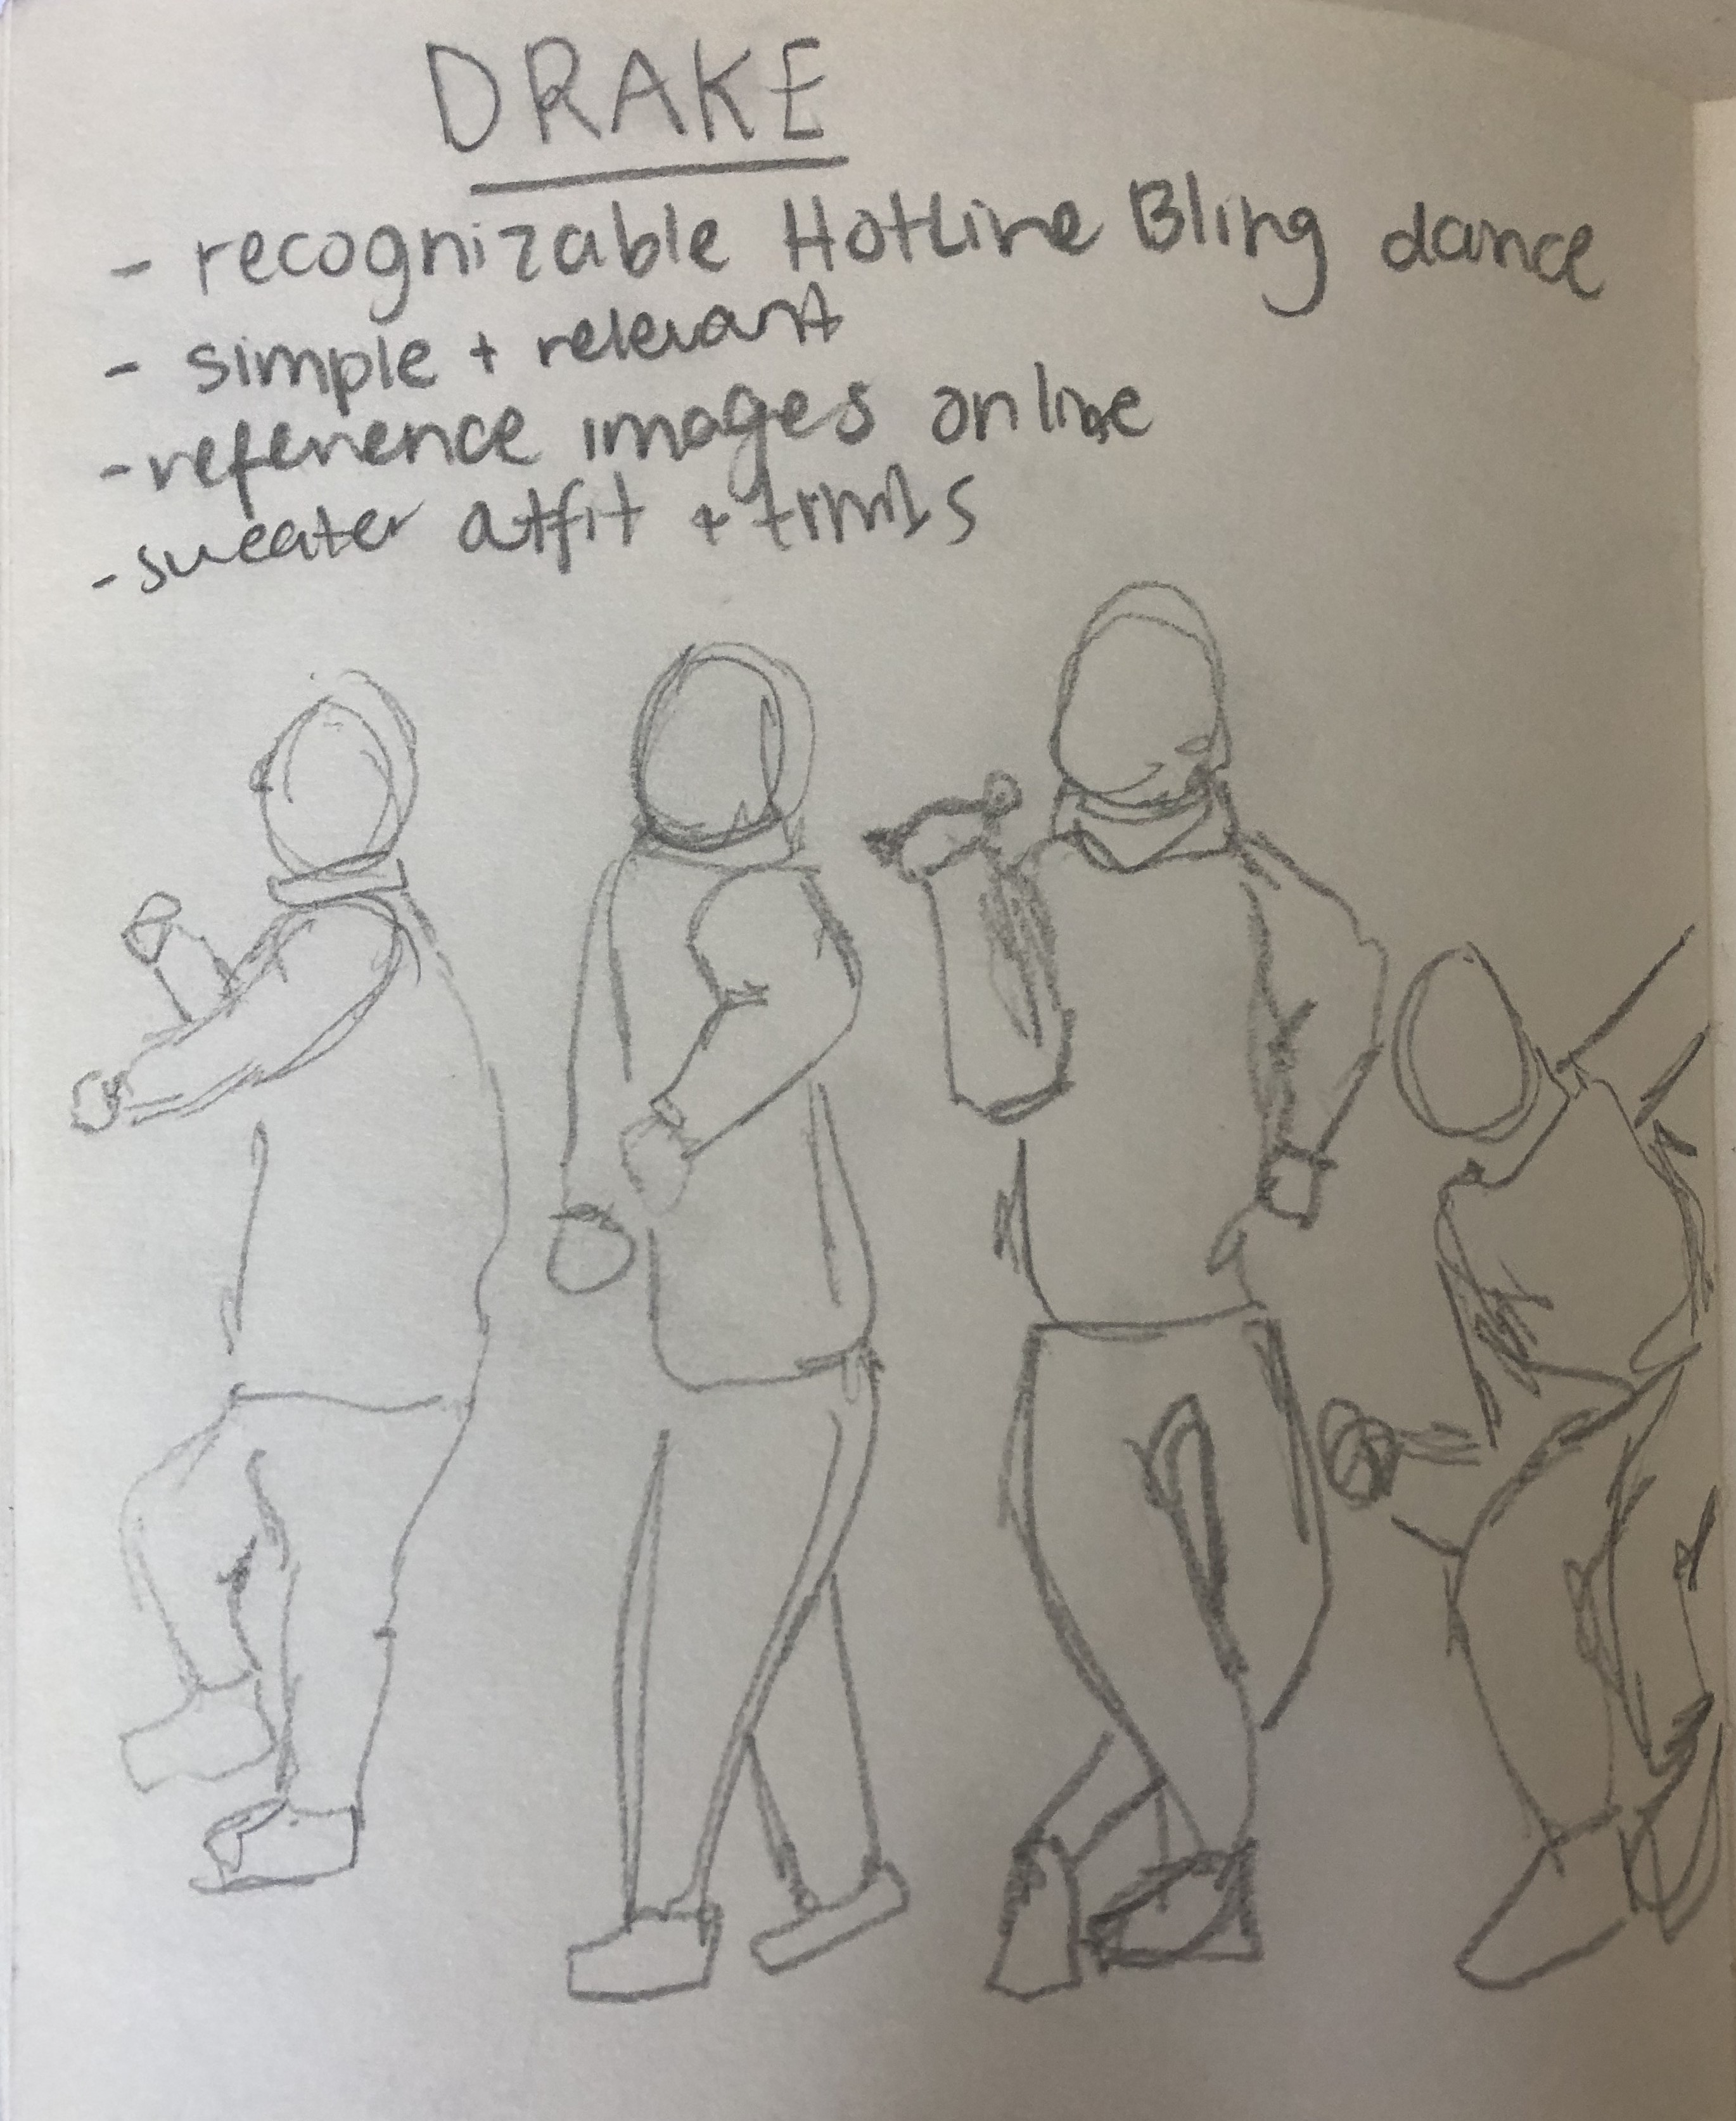 DRAKE
- recognizable Hotline Bling dance
- simple + relevant
- reference images online
- sweater outfit + timbs